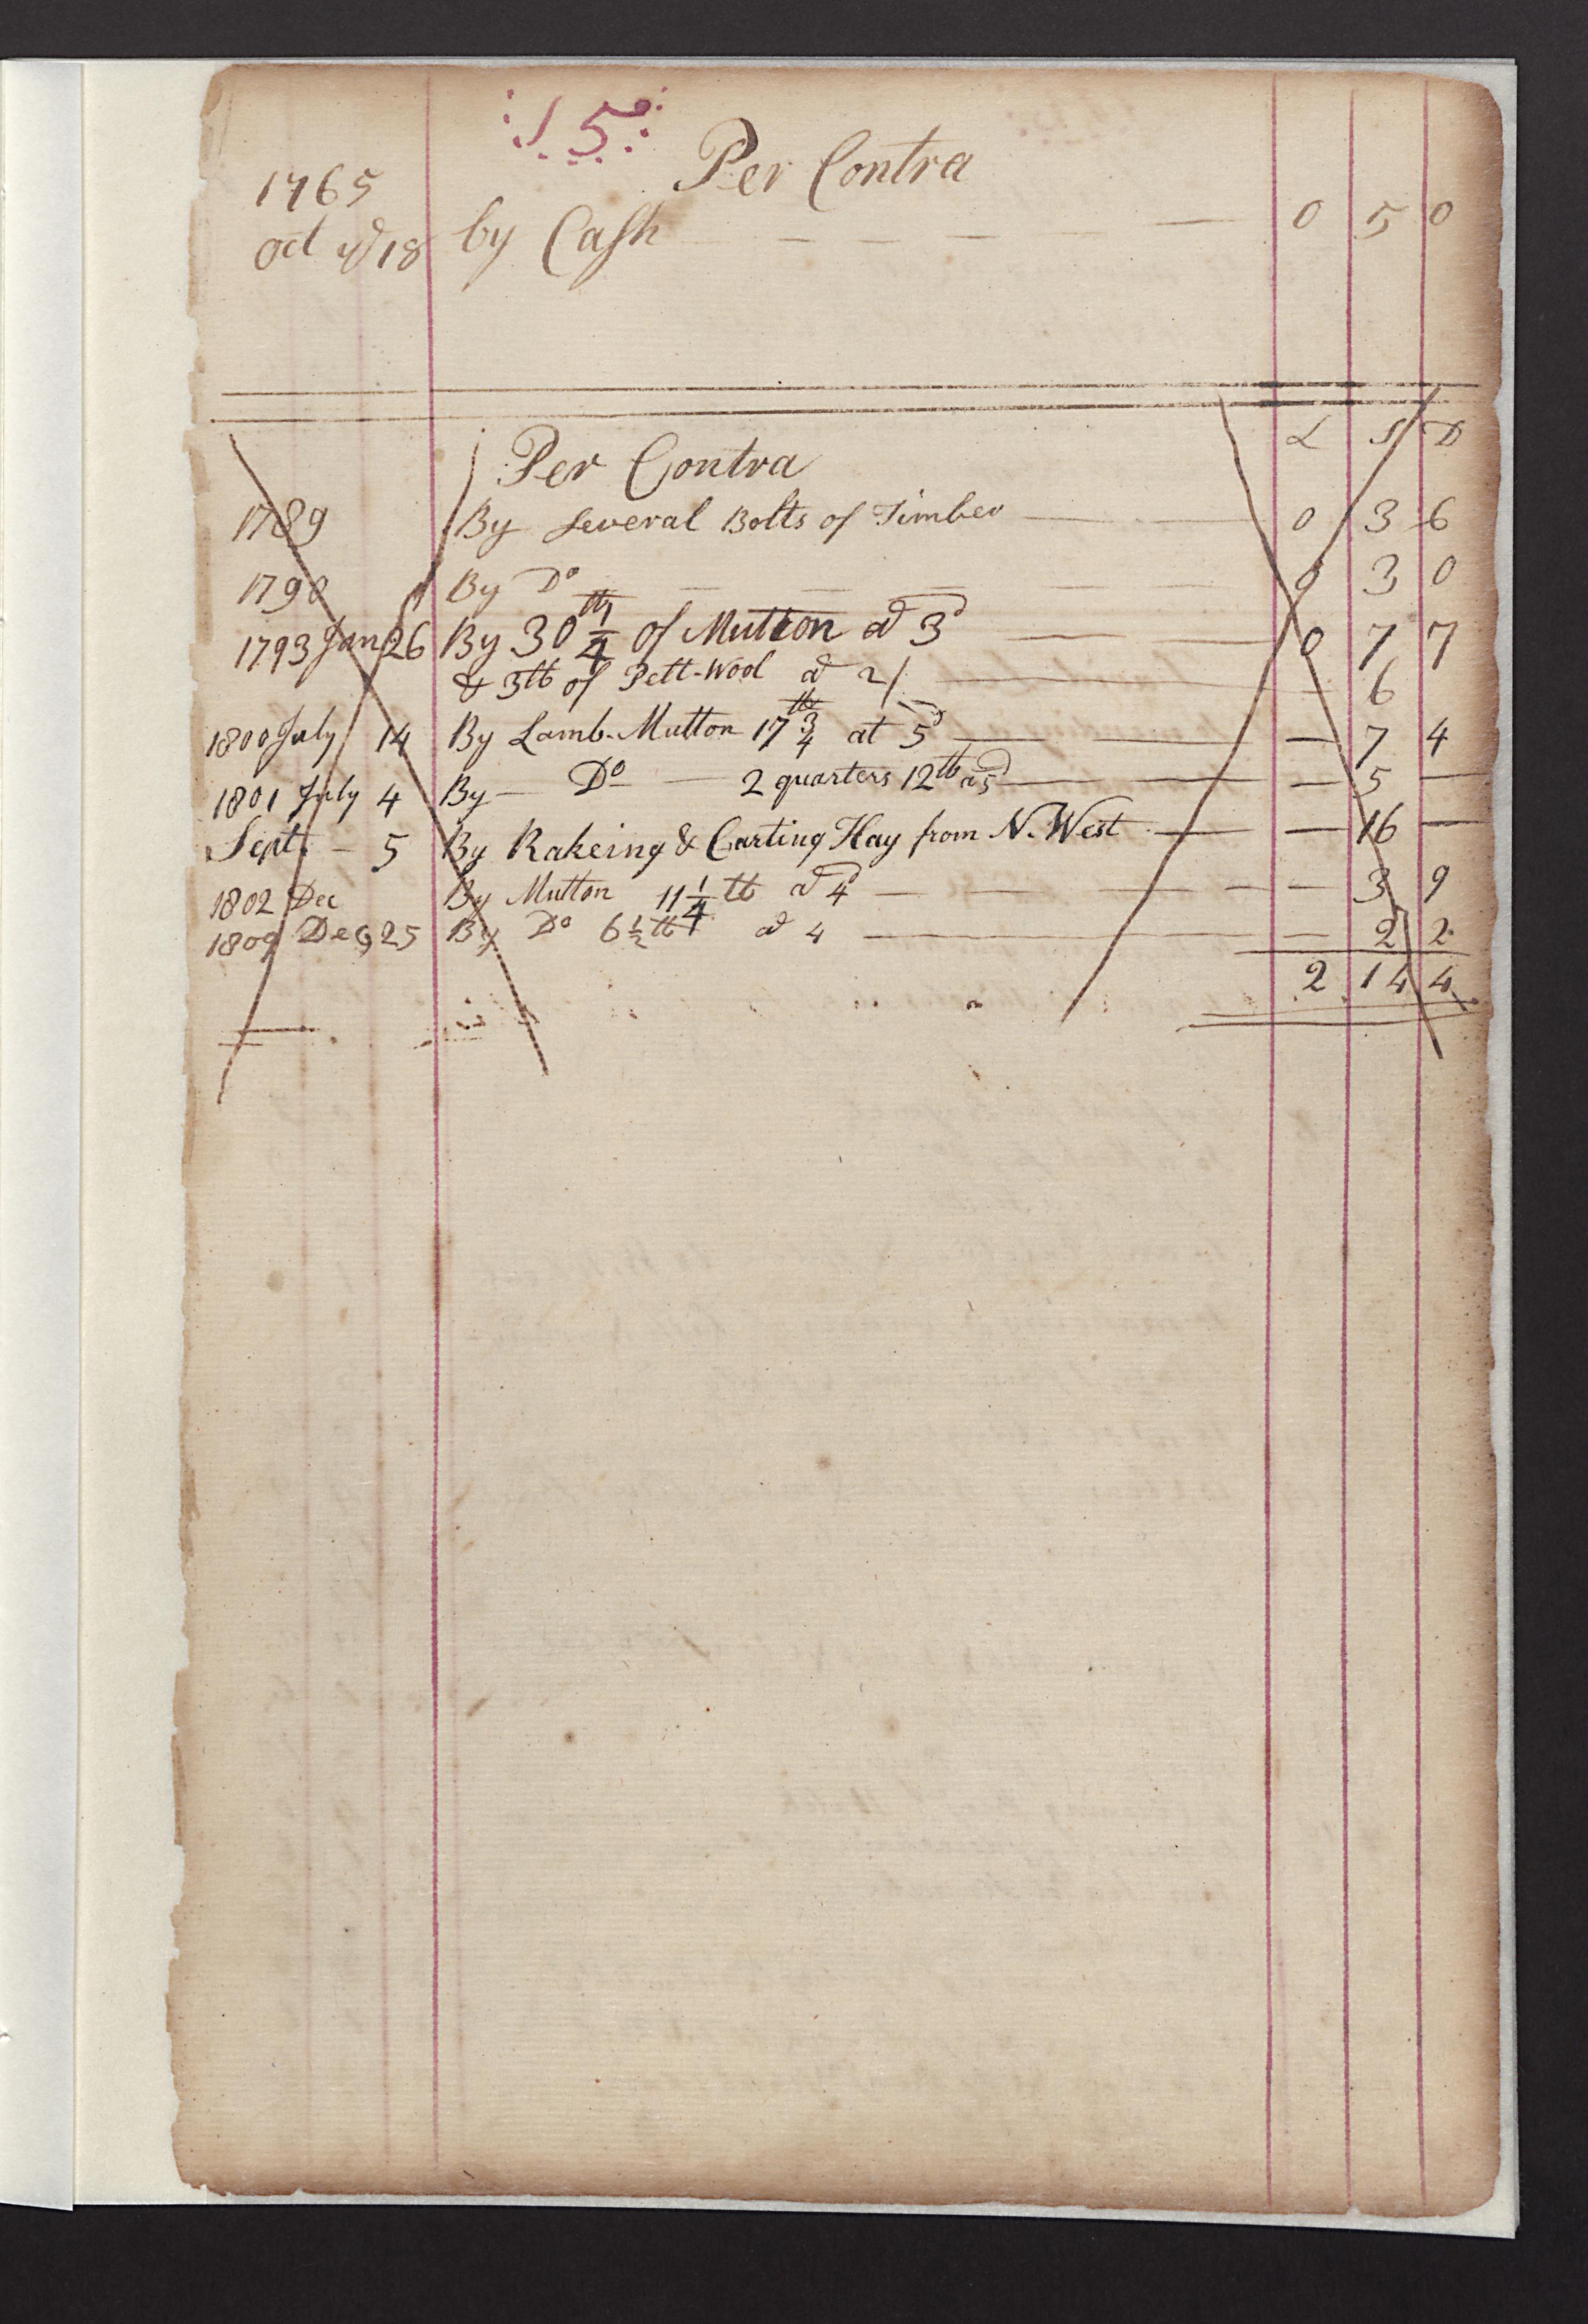 :15:
Per Contra
1765
Oct ye 18 by Cash — — — — — 0 5 0
£ S D
Per Contra
1789 By Several Bolts of Timber — — 0 3 6
1790 By Do — — — — 0 3 0
1793 Jan 26 By 30 1/4 lb of Mutton at 3d — — 0 7 7
& 3 lb of Pelt-Wool at 2/ — — 6
1800 July 14 By Lamb-Mutton 17 3/4 lb at 5d — — — 7 4
1801 July 4 By — Do — 2 quarters 12 lb a 5d — — 5 —
Sept. — 5 By Rakeing & Carting Hay from N. West — — 16 —
1802 Dec By Mutton 11 1/4 lb at 4d — — — — 3 9
1809 Dec 25 By Do 6 1/2 lb at 4 — — 2 2
2 14 4